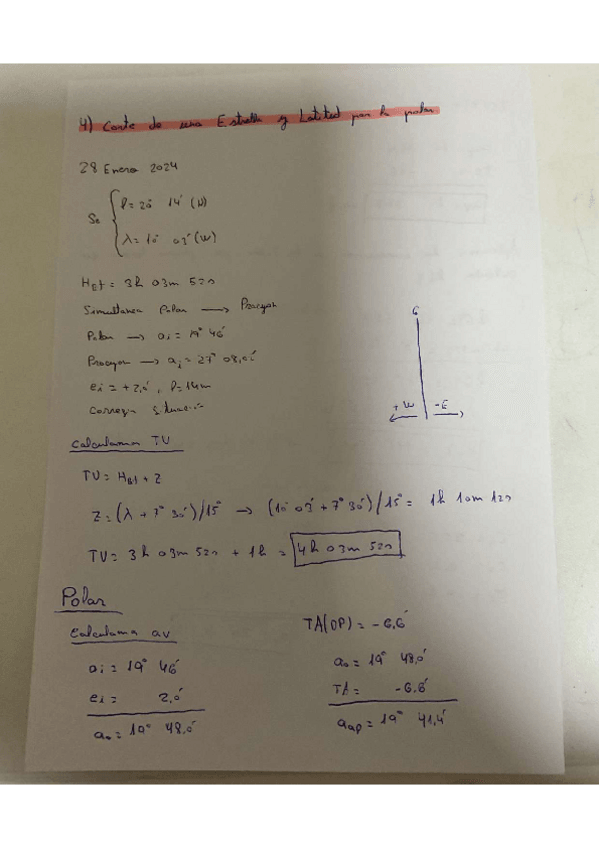 4) Corte de una Estrella y Latitud por la polar
28 Enero 2024
Se { l = 20° 14' (N)
λ = 10° 03' (W)
HRB = 3h 03m 52s
Simultanea Polar → Procyon
Polar → ai = 19° 46'
Procyon → ai = 27° 08,0'
ei = +2,0', P = 14m
Corregir situación
G
+W -E
Calculamos TU
TU = HRB + Z
Z = (λ + 7° 30')/15° → (10° 03' + 7° 30')/15° = 1h 10m 12s
TU = 3h 03m 52s + 1h = 4h 03m 52s
Polar
Calculamos av
ai = 19° 46'
ei = 2,0'
ao = 19° 48,0'
TA(DP) = -6,6'
ao = 19° 48,0'
TA = -6,6'
aap = 19° 41,4'